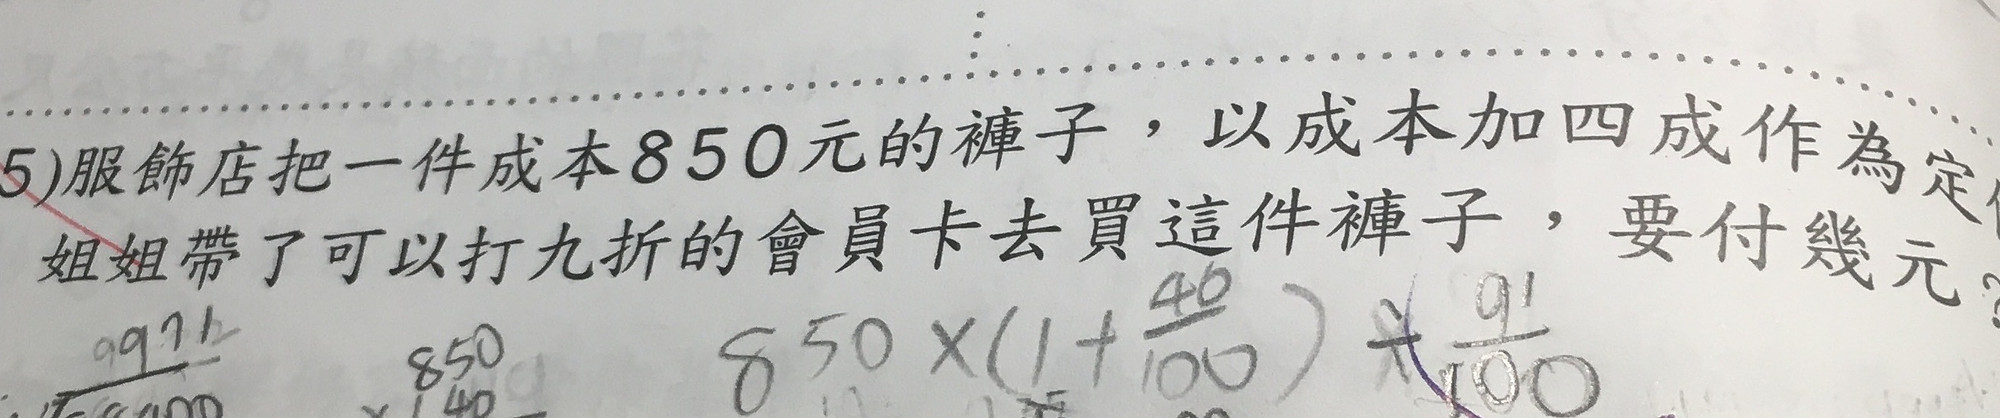 5)服飾店把一件成本850元的褲子，以成本加四成作為定
姐姐帶了可以打九折的會員卡去買這件褲子，要付幾元？
850×(1+40/100)
91/100
850